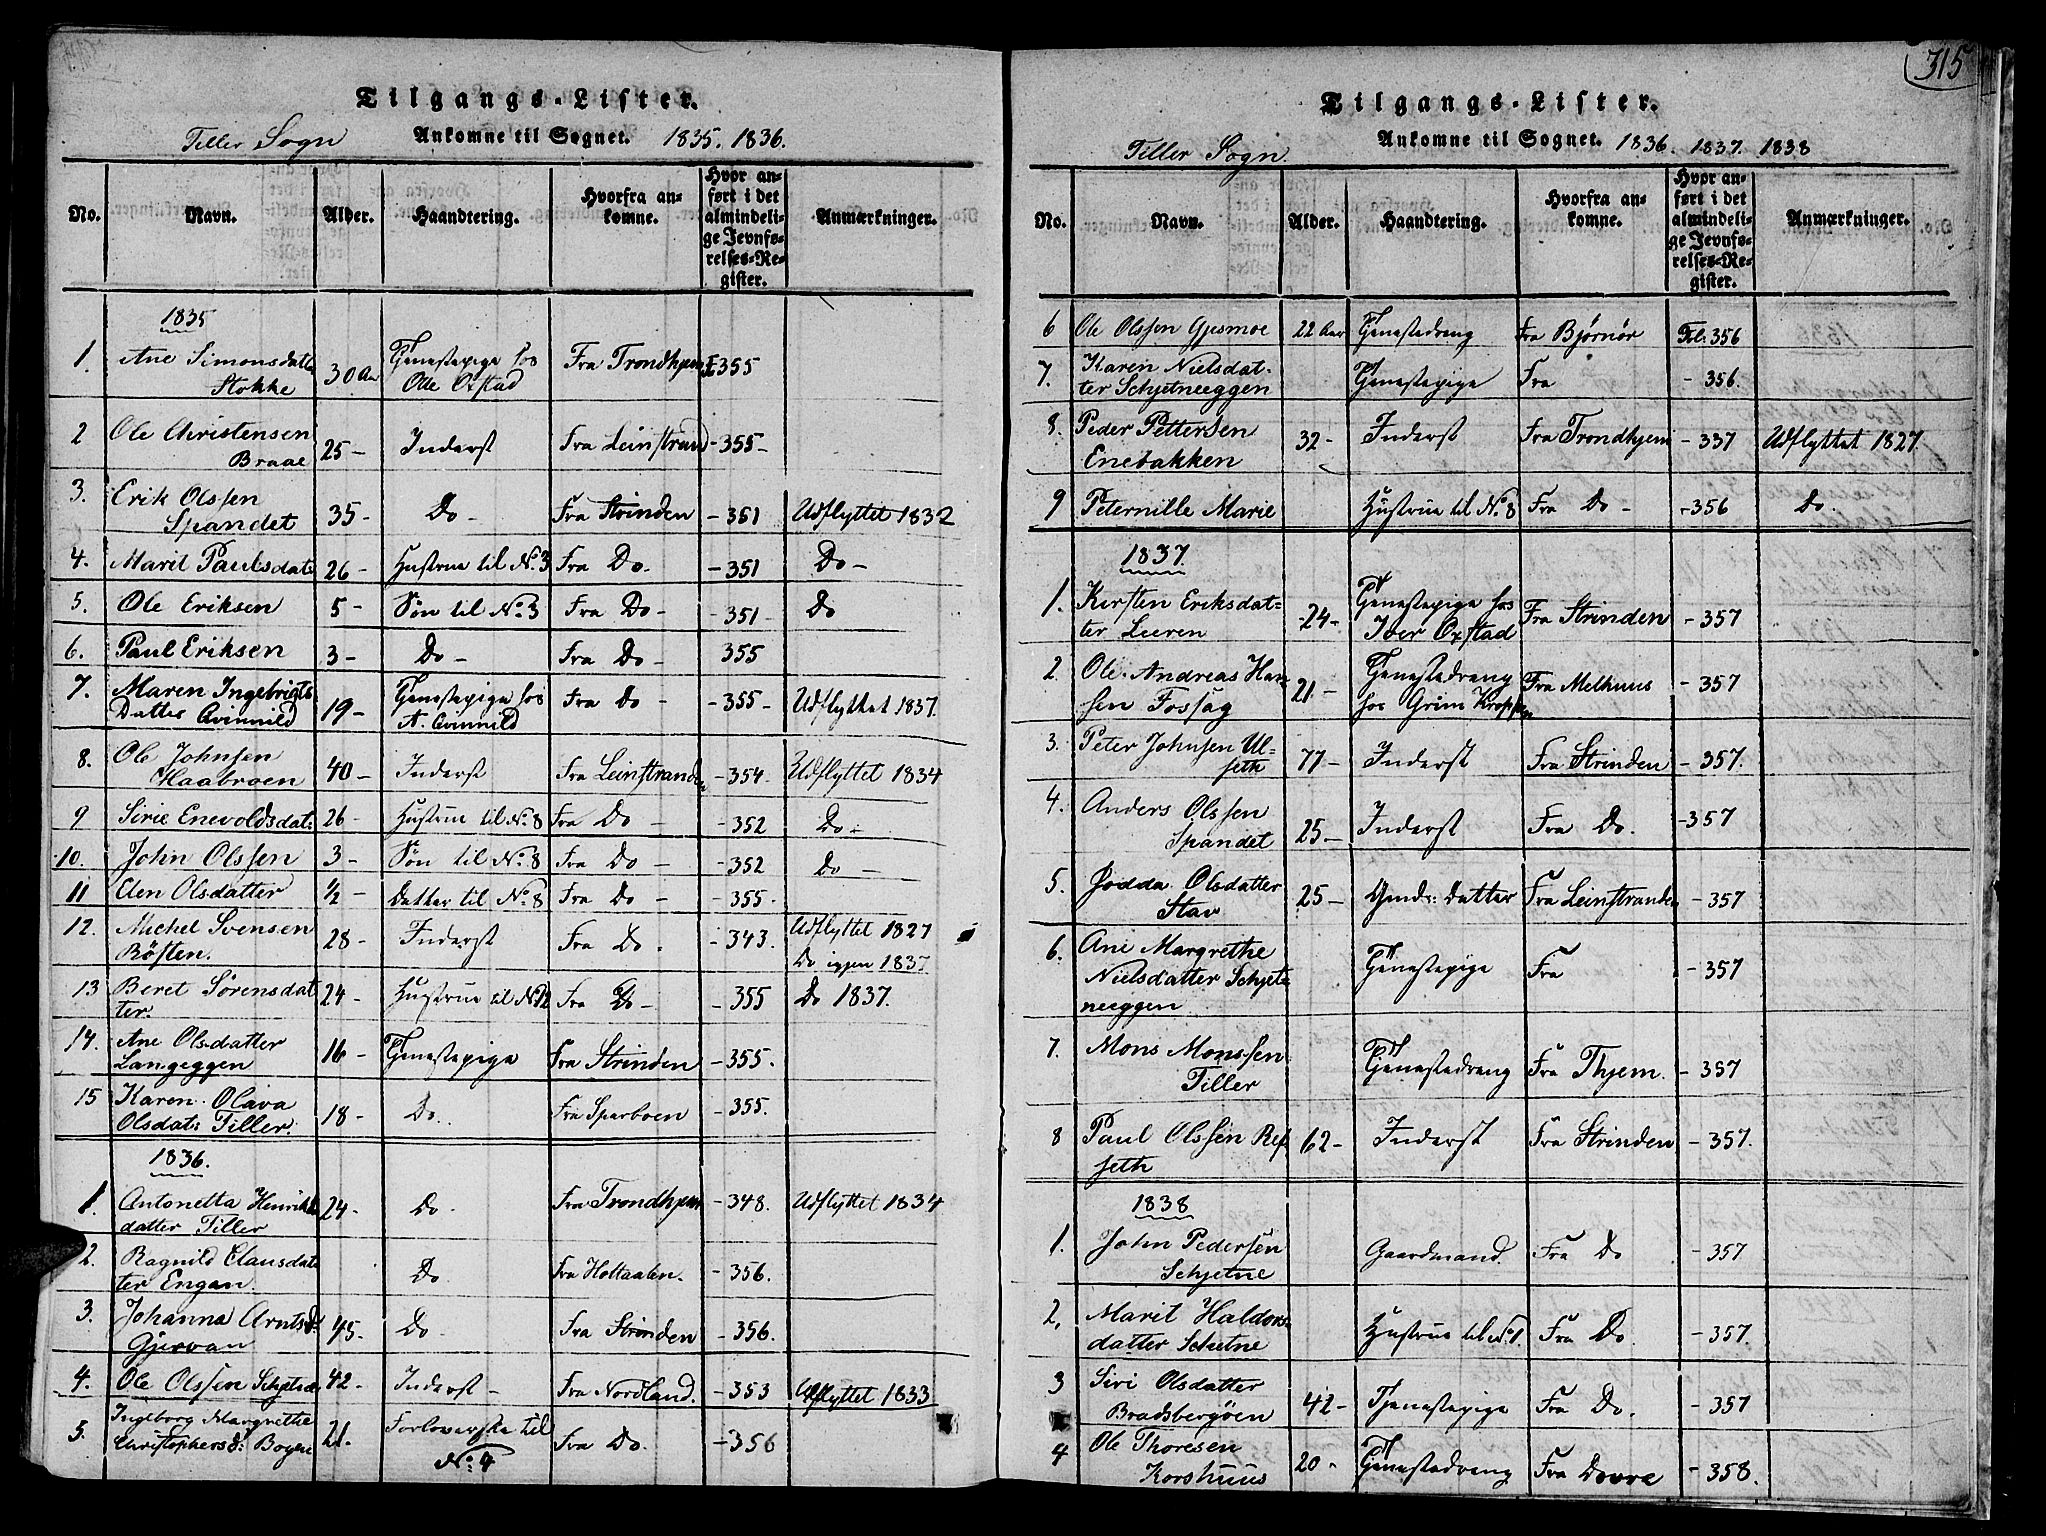 Tilgangs-Lister.
Tiller Sogn Ankomne til Sognet. 1835. 1836.
No. Navn. Alder. Haandtering. Hvorfra an- komne. Hvor an- ført i det almindeli- ge Jevnfø- relses-Re- gister. Anmærkninger.
1835
1. Ane Simonsdatter 30 Aar Tjenestepige hos Fra Trondhjem 355
Stokke Ole Oxstad
2 Ole Christensen 25 - Inderst Fra Leinstrand - 355 -
Braae
3. Erik Olssen 35 - Do - Fra Strinden - 351 Udflyttet 1832
Spandet
4. Marit Paulsdat 26 - Hustrue til No. 3 Fra Do. - 351 Do -
5. Ole Eriksen 5 - Søn til No. 3 Fra Do - - 351 - Do
6. Paul Eriksen 3 - Do - Fra Do - 355
7. Maren Ingebrigts 19 - Tjenestepige hos Fra Do - - 355 - Udflyttet 1837.
Datter Qvinnild A. Qvinnild
8. Ole Johnsen 40 - Inderst Fra Leinstranden - 354. Udflyttet 1834
Haabroen
9 Sirie Enevoldsdat: 26 - Hustrue til No. 8 Fra Do - - 352 Do -
10. John Olssen 3 - Søn til No. 8 Fra Do - - 352 Do -
11 Elen Olsdatter 1/2 - Datter til No. 8 Fra Do - - 355.
12. Michel Svensen 28 - Inderst Fra Do. - 343. Udflyttet 1827
Røsten. Do igjen 1837
13 Beret Sørensdat 24 - Hustrue til No. 12 Fra Do - - 355 Do 1837.
ter.
14. Ane Olsdatter 16 - Tjenestepige Fra Strinden - 355.
Langeggen
15 Karen Olava 18 - Do. Fra Sparboen - 355.
Olsdat: Tiller.
1836.
1. Antonetta Henriks 24 - Do. Fra Trondhjem - 348. Udflyttet 1834
datter Tiller
2. Ragnild Clausdat Do. Fra Holtaalen. - 356.
ter Engan.
3. Johanna Arntsd: 45 - Do. Fra Strinden - 356.
Gjervan
4. Ole Olssen Schjetne 42 - Inderst - Fra Nordland. - 353 Udflyttet 1833
5. Ingeborg Margrethe 21. Forloverske til Fra Do. - 356
Christophersd: Bogne No. 4
315
Tilgangs-Lister.
Tiller Sogn. Ankomne til Sognet. 1836. 1837. 1838
No. Navn. Alder. Haandtering. Hvorfra an- komne. Hvor an- ført i det almindeli- ge Jevnfø- relses-Re- gister. Anmærkninger.
6 Ole Olssen Gjesmoe 22 Aar Tjenestedreng Fra Bjørnør Fol: 356
7. Karen Nielsdat- Tjenestepige Fra - 356.
ter Schjetneeggen
8. Peder Pettersen 32 - Inderst Fra Trondhjem - 337 Udflyttet 1827.
Enebakken
9 Peternille Marie Hustrue til No. 8 Fra Do - - 356 Do.
1837.
1. Kirsten Eriksdat- 24 - Tjenestepige hos Fra Strinden - 357
ter Leeren Iver Oxstad
2. Ole Andreas Han 21 - Tjenestedreng Fra Melhuus - 357
sen Fossag hos Grim Kroppan
3. Peter Johnsen Ul- 77 - Inderst Fra Strinden - 357.
seth
4. Anders Olssen 25 - Inderst Fra Do. - 357
Spandet
5. Jødda Olsdatter 25 - Datter Fra Leinstranden - 357
Stav
6. Ane Margrethe Tjenestepige Fra - 357
Nielsdatter Schjet-
neeggen
7. Mons Monssen Tjenestedreng Fra Thjem. - 357
Tiller
8 Paul Olssen Ref 62 - Inderst Fra Strinden - 357.
seth
1838
1. John Pedersen Gaardmand. Fra Do - 357
Schjetne
2. Marit Haldors- Hustrue til No. 1. Fra Do. - 357.
datter Schjetne
3 Siri Olsdatter 42 - Tjenestepige Fra Do. - 357
Bradsbergøen
4 Ole Thoresen 20 - Tjenestedreng Fra Dovre - 358.
Korshuus